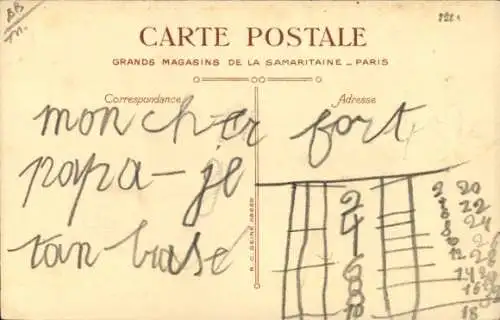 BB
m.
CARTE POSTALE
GRANDS MAGASINS DE LA SAMARITAINE _ PARIS
Correspondance
Adresse
mon cher fort
papa - je
tan brase
2
4
6
8
10
2 20
22
6 24
8 26
10
12 28
14
16
18